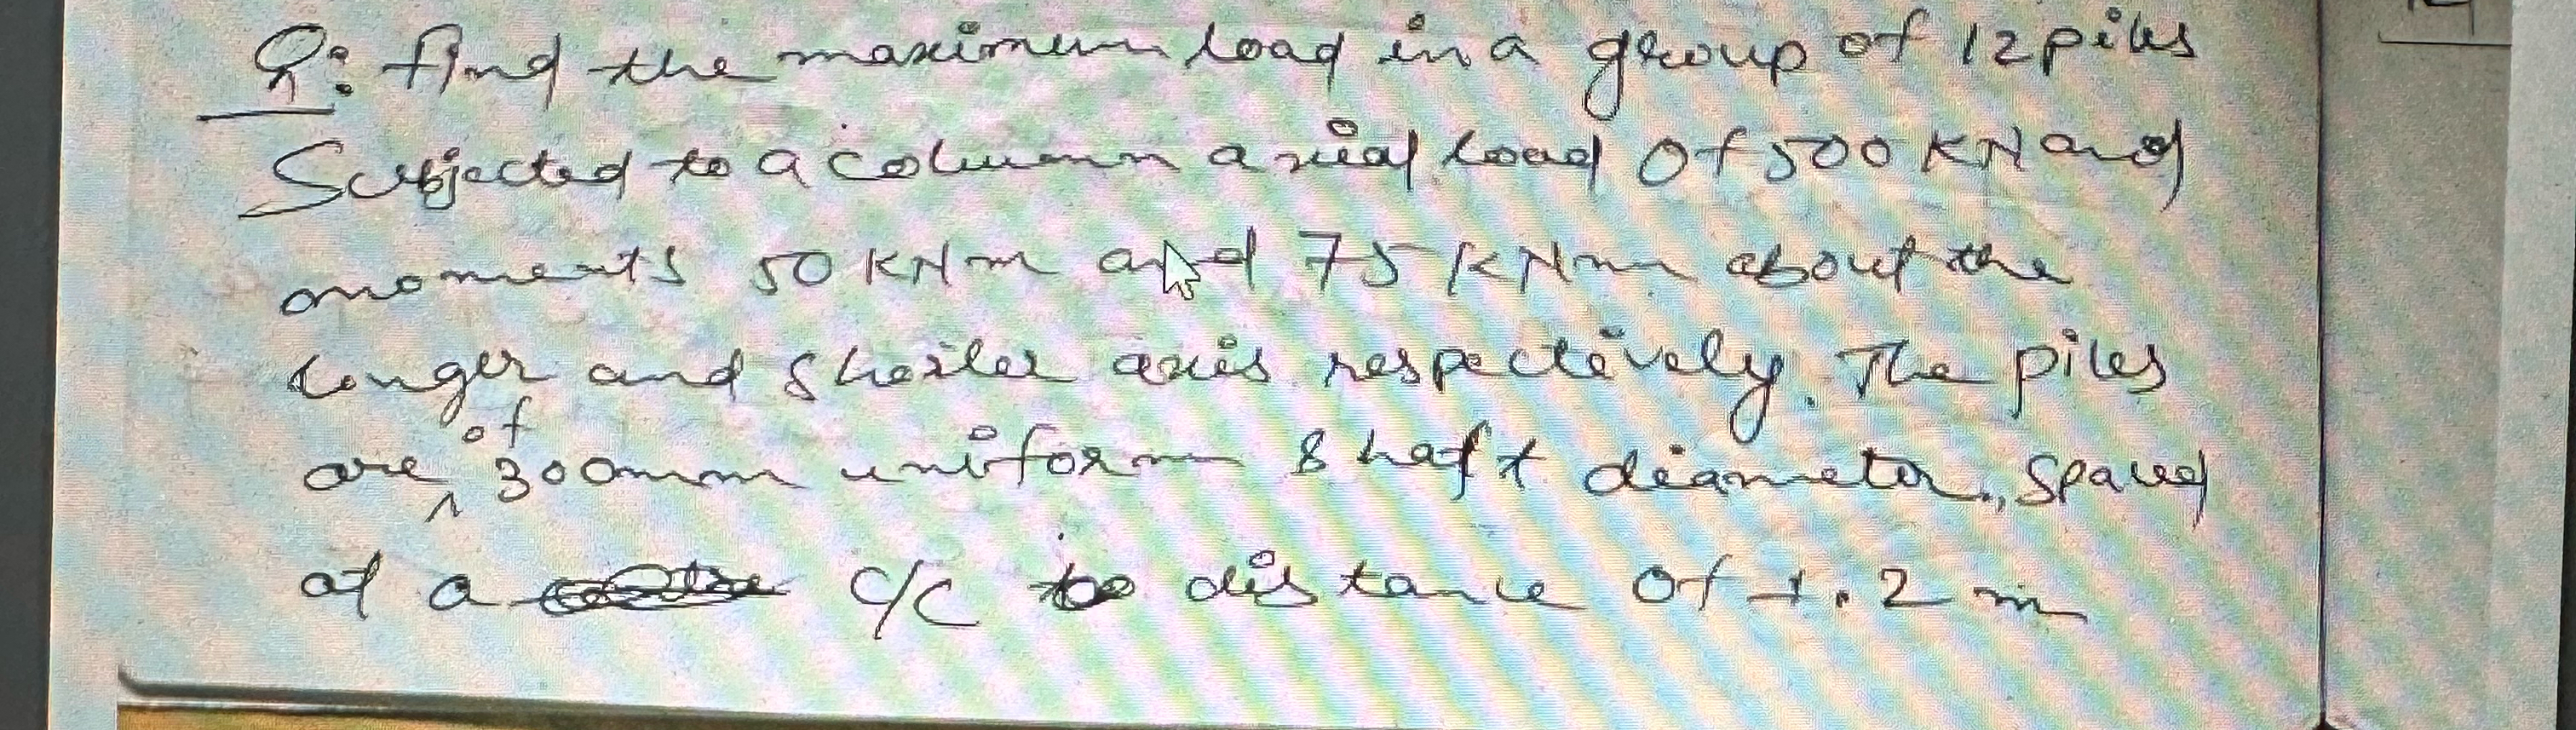 Q: find the maximum load in a group of 12 piles
Subjected to a column axial load of 500 KN and
moments 50 KNm and 75 KNm about the
longer and shorter axis respectively. The piles
are of 300mm uniform shaft diameter, spaced
at a c/c to distance of 1.2 m